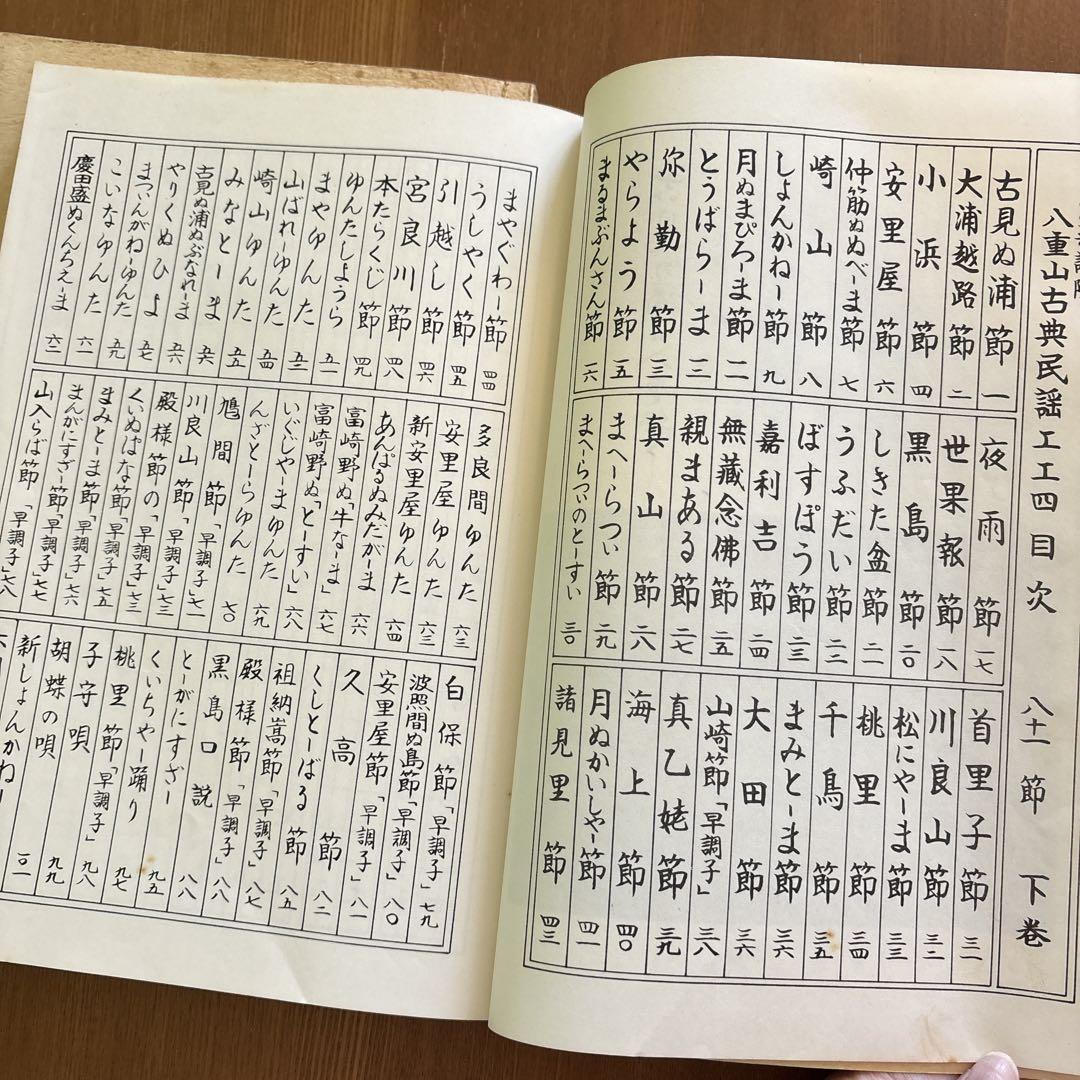 八重山古典民謡工工四目次 八十一節 下巻
古見ぬ浦節 一
大浦越路節 二
小浜節 四
安里屋節 六
仲筋ぬぬべーま節 七
崎山節 八
しょんかねー節 九
月ぬまぴろーま節 一一
とぅばらーま 一二
弥勤節 一三
やらよう節 一五
まるまぶんさん節 一六
夜雨節 一七
世果報節 一八
黒島節 二〇
しきた盆節 二一
うふだい節 二二
ばすぽう節 二三
嘉利吉節 二四
無蔵念佛節 二五
親まある節 二七
真山節 二八
まへーらつぃ節 二九
まへーらつぃのとーすい 三〇
首里子節 三一
川良山節 三二
松にやーま節 三三
桃里節 三四
千鳥節 三五
まみとーま節 三六
大田節 三六
山崎節「早調子」 三八
真乙姥節 三九
海上節 四〇
月ぬかいしゃー節 四一
諸見里節 四三
まやぐわー節 四四
うしやく節 四五
引越し節 四六
宮良川節 四八
本たらくじ節 四九
ゆんたしょうら 五一
まやゆんた 五二
山ばれーゆんた 五三
崎山ゆんた 五四
みなとーま 五五
古見ぬ浦ぬぶなれーま 五六
やりくぬひよ 五六
まつぃんがねゆんた 五七
こいなゆんた 五九
慶田盛ぬくんちぇーま 六一
多良間ゆんた 六三
安里屋ゆんた 六三
新安里屋ゆんた 六四
あんぱるぬみだがーま 六六
富崎野ぬ「牛なーま」 六七
富崎野ぬ「とーすい」 六八
いぐじゃーまゆんた 六九
んざとーらゆんた 七〇
鳩間節「早調子」 七一
川良山節「早調子」 七三
殿様節の「早調子」 七三
くいぬぱな節「早調子」 七五
まみとーま節「早調子」 七六
まんがにすざー節「早調子」 七七
山入らば節「早調子」 七八
白保節「早調子」 七九
波照間ぬ島節「早調子」 八〇
安里屋節「早調子」 八一
久高節 八二
くしとーばる節 八五
祖納嵩節「早調子」 八七
殿様節「早調子」 八八
黒島口説 八八
とーがにすざー 九五
くいちゃー踊り 九七
桃里節「早調子」 九八
子守唄 九九
胡蝶の唄 一〇一
新しょんかねー